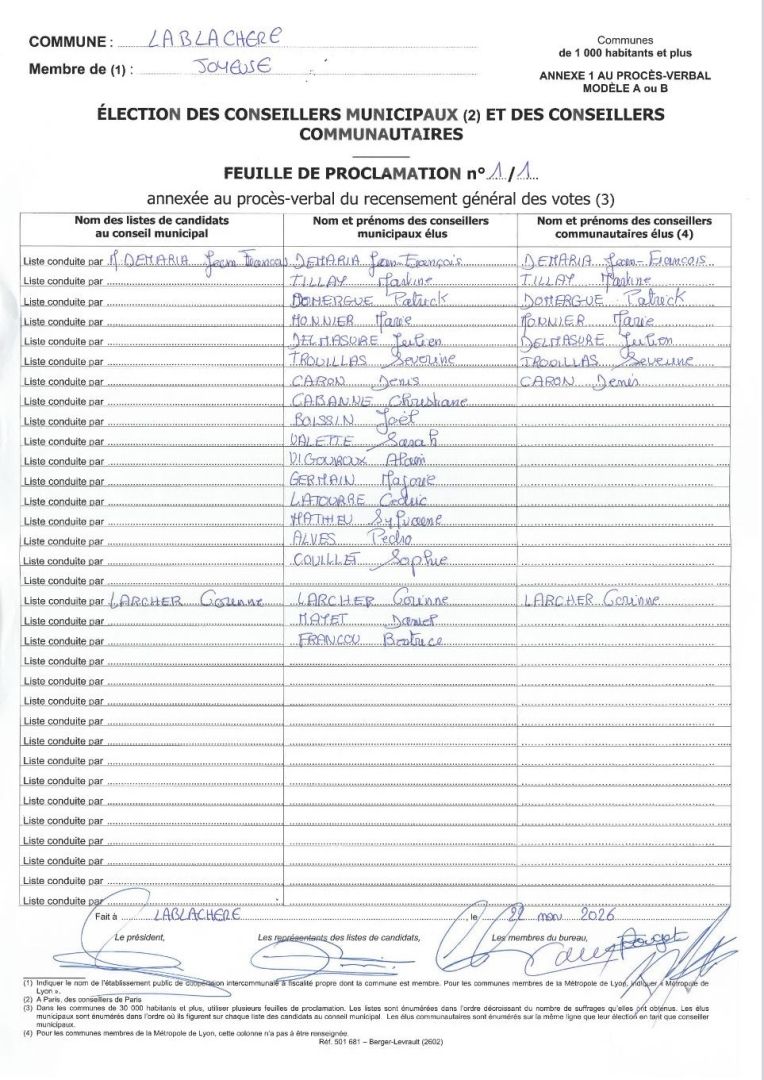 COMMUNE : LABLACHERE
Membre de (1) : JOYEUSE
Communes
de 1 000 habitants et plus
ANNEXE 1 AU PROCÈS-VERBAL
MODÈLE A ou B
ÉLECTION DES CONSEILLERS MUNICIPAUX (2) ET DES CONSEILLERS
COMMUNAUTAIRES
FEUILLE DE PROCLAMATION n° 1/1
annexée au procès-verbal du recensement général des votes (3)
Nom des listes de candidats au conseil municipal | Nom et prénoms des conseillers municipaux élus | Nom et prénoms des conseillers communautaires élus (4)
Liste conduite par M DEMARIA Jean François DEMARIA Jean-François DEMARIA Jean-François
Liste conduite par TILLAY Martine TILLAY Martine
Liste conduite par DOMERGUE Patrick DOMERGUE Patrick
Liste conduite par MONNIER Marie MONNIER Marie
Liste conduite par DELMASURE Julien DELMASURE Julien
Liste conduite par TROUILLAS Severine TROUILLAS Severine
Liste conduite par CARON Denis CARON Denis
Liste conduite par CABANNE Christiane
Liste conduite par BOISSIN Joël
Liste conduite par VALETTE Sarah
Liste conduite par VIGOUROUX Alain
Liste conduite par GERMAIN Marjorie
Liste conduite par LATOURRE Cedric
Liste conduite par MATHIEU Sylviane
Liste conduite par ALVES Pedro
Liste conduite par COUILLET Sophie
Liste conduite par
Liste conduite par LARCHER Corinne LARCHER Corinne LARCHER Corinne
Liste conduite par MAYET Daniel
Liste conduite par FRANCOU Beatrice
Liste conduite par
Liste conduite par
Liste conduite par
Liste conduite par
Liste conduite par
Liste conduite par
Liste conduite par
Liste conduite par
Liste conduite par
Liste conduite par
Liste conduite par
Liste conduite par
Liste conduite par
Fait à LABLACHERE, le 22 mars 2026
Le président, Les représentants des listes de candidats, Les membres du bureau,
(1) Indiquer le nom de l'établissement public de coopération intercommunale à fiscalité propre dont la commune est membre. Pour les communes membres de la Métropole de Lyon, indiquer « Métropole de
Lyon ».
(2) A Paris, des conseillers de Paris
(3) Dans les communes de 30 000 habitants et plus, utiliser plusieurs feuilles de proclamation. Les listes sont énumérées dans l'ordre décroissant du nombre de suffrages qu'elles ont obtenus. Les élus
municipaux sont énumérés dans l'ordre où ils figurent sur chaque liste des candidats au conseil municipal. Les élus communautaires sont énumérés sur la même ligne que leur élection en tant que conseiller
municipaux.
(4) Pour les communes membres de la Métropole de Lyon, cette colonne n'a pas à être renseignée.
Réf. 501 681 – Berger-Levrault (2602)